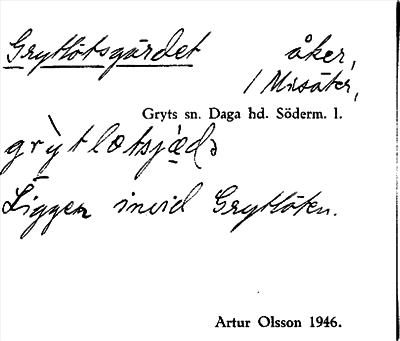 Grytlötsgärdet åker,
/ Missäter,
Gryts sn. Daga hd. Söderm. l.
Ligger invid Grytlöten.
Artur Olsson 1946.